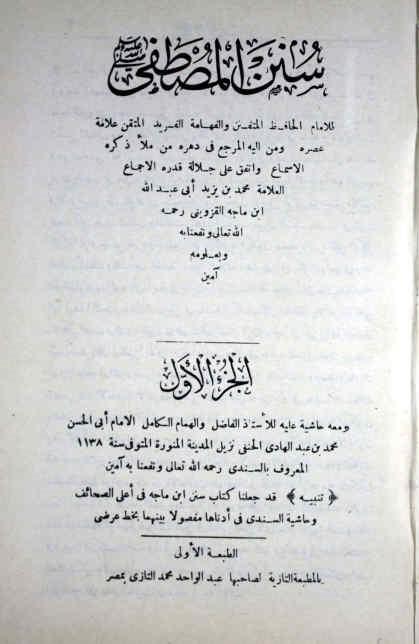 سنن المصطفى ﷺ
للامام الحافظ المتفنن والفهامة الفريد المتقن علامة
عصره ومن اليه المرجع فى دهره من ملأ ذكره
الاسماع واتفق على جلالة قدره الاجماع
العلامة محمد بن يزيد أبى عبد الله
ابن ماجه القزوينى رحمه
الله تعالى ونفعنا به
وبعلومه
آمين
الجزء الأول
ومعه حاشية عليه للأستاذ الفاضل والهمام الكامل الامام أبى الحسن
محمد بن عبد الهادى الحنفى نزيل المدينة المنورة المتوفى سنة ١١٣٨
المعروف بالسندى رحمه الله تعالى ونفعنا به آمين
﴿ تنبيه ﴾ قد جعلنا كتاب سنن ابن ماجه فى أعلى الصحائف
وحاشية السندى فى أدناها مفصولا بينهما بخط عرضى
الطبعة الأولى
بالمطبعة التازية لصاحبها عبد الواحد محمد التازى بمصر